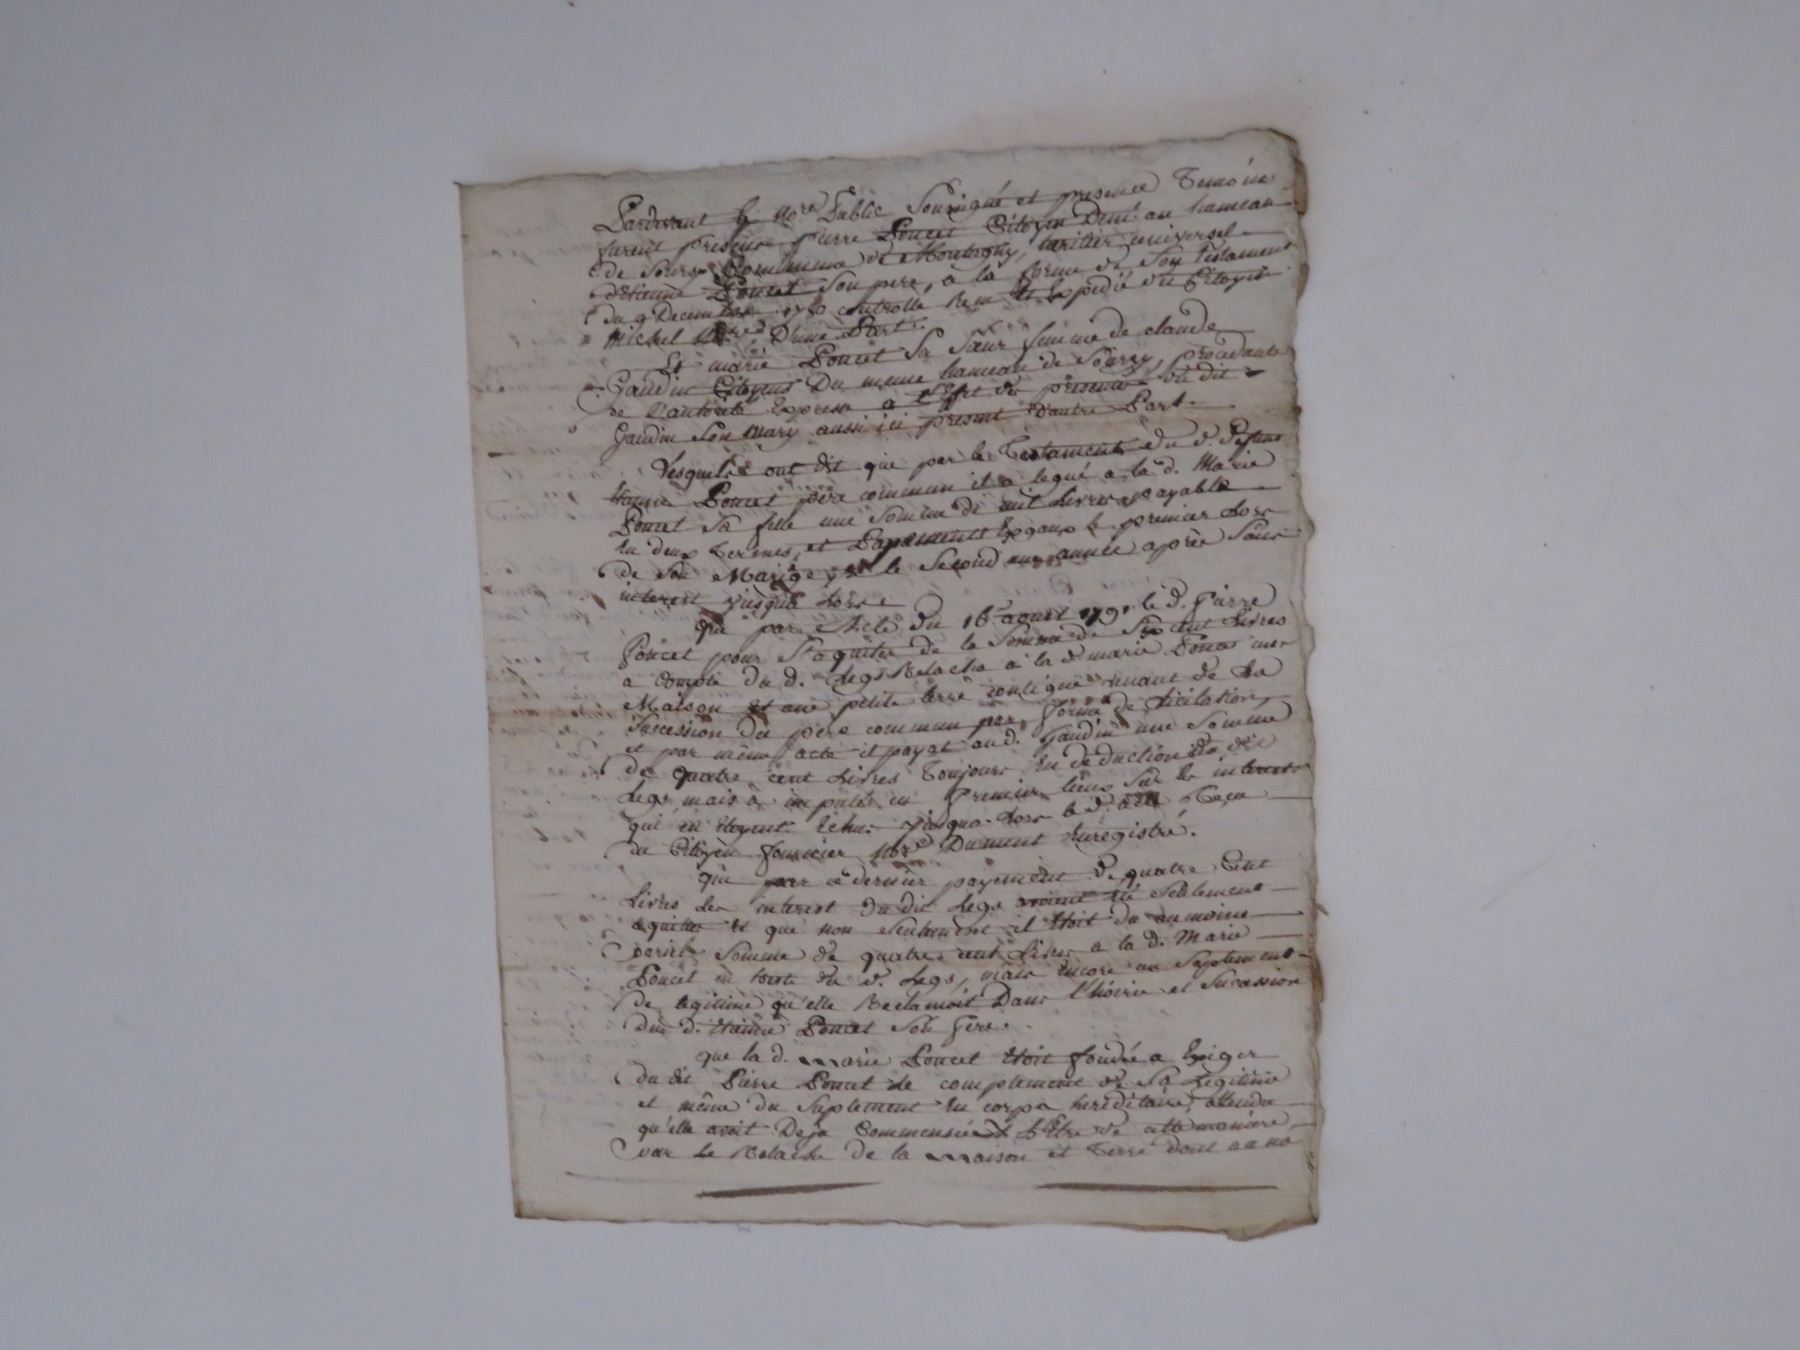 Pardevant le No.re Public Sousigné et presence Temoins
furent presens pierre Poncet Citoyen Demt. au hameau
de Soursy Commune de Montagny, heritier universel
d'Etienne Poncet son pere, a la forme de Son Testament
du 9 Decembre controllé Remis et Expedié du Citoyen
Michel No.re D'une Part.
Et marie Poncet Sa Sœur femme de claude
Gaudin Citoyens Du meme hameau de Soursy, procedante
de l'autorité Expresse a l'Effet des presentes du dit
Gaudin Son Mary aussi ici present D'autre Part.
Lesquels ont dit que par le Testament du d. Defunt
Etienne Poncet père commun il a legué a la d. Marie
Poncet Sa fille une Somme de mil Livres payable
En deux Termes, et Payements Egaux le premier Lors
de Son Mariage, et le Second une année après Sans
interest jusqu'a Lors
que par Acte du 16 aoust 1791 le d. Pierre
Poncet pour S'aquiter de la Somme de Six Cent Livres
a Compte du d. Legs Relacha a la d. marie Poncet une
Maison et une petite terre contigue venant de La
Succession du père commun par forme de licitation,
et par même acte il payat au d. Gaudin une Somme
de quatre cent Livres Toujours En deduction du dit
Legs mais à imputer en Premier lieu Sur les interets
qui en Etoyent Echus jusqua Lors le d. acte Reçu
du Citoyen fournier No.re Dument Enregistré.
que par ce dernier payement de quatre Cent
Livres Les interest du dit Legs avoient été Seulement
aquittés et que non Seulement il Etoit du au moins
pareille Somme de quatre cent Livres a la d. Marie
Poncet en reste du d. Legs, mais encore un Suplement
de legitime qu'elle Reclamoit Dans l'hoirie et Sucession
Du d. Etienne Poncet Son Pere.
que la d. Marie Poncet Etoit fondée a Exiger
du dit Pierre Poncet Le complement de Sa Legitime
et même du Suplement En corps hereditaire, attendu
qu'elle avoit Deja Commensée d'Etre de cette manière,
par Le Relache de la Maison et Terre dont a